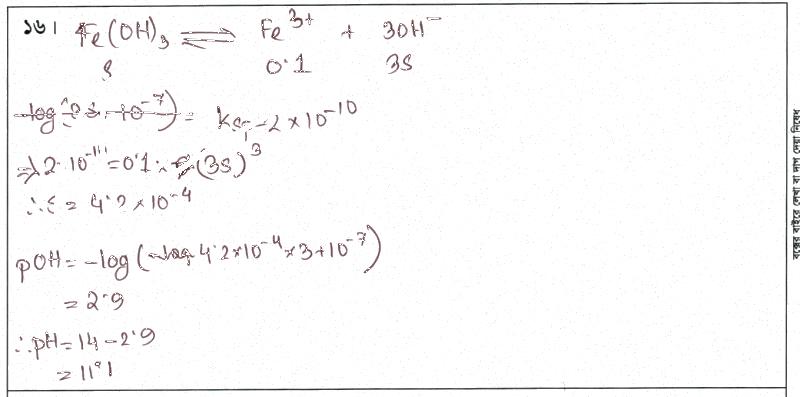 ১৬। Fe(OH)₃ ⇌ Fe³⁺ + 3OH⁻
S 0.1 3S
Ksp = 2 × 10⁻¹⁰
⇒ 2 × 10⁻¹⁰ = 0.1 × (3S)³
∴ S = 4.2 × 10⁻⁴
pOH = -log(4.2×10⁻⁴×3+10⁻⁷)
= 2.9
∴ pH = 14 - 2.9
= 11.1
বক্সের বাইরে লেখা বা দাগ দেয়া নিষেধ